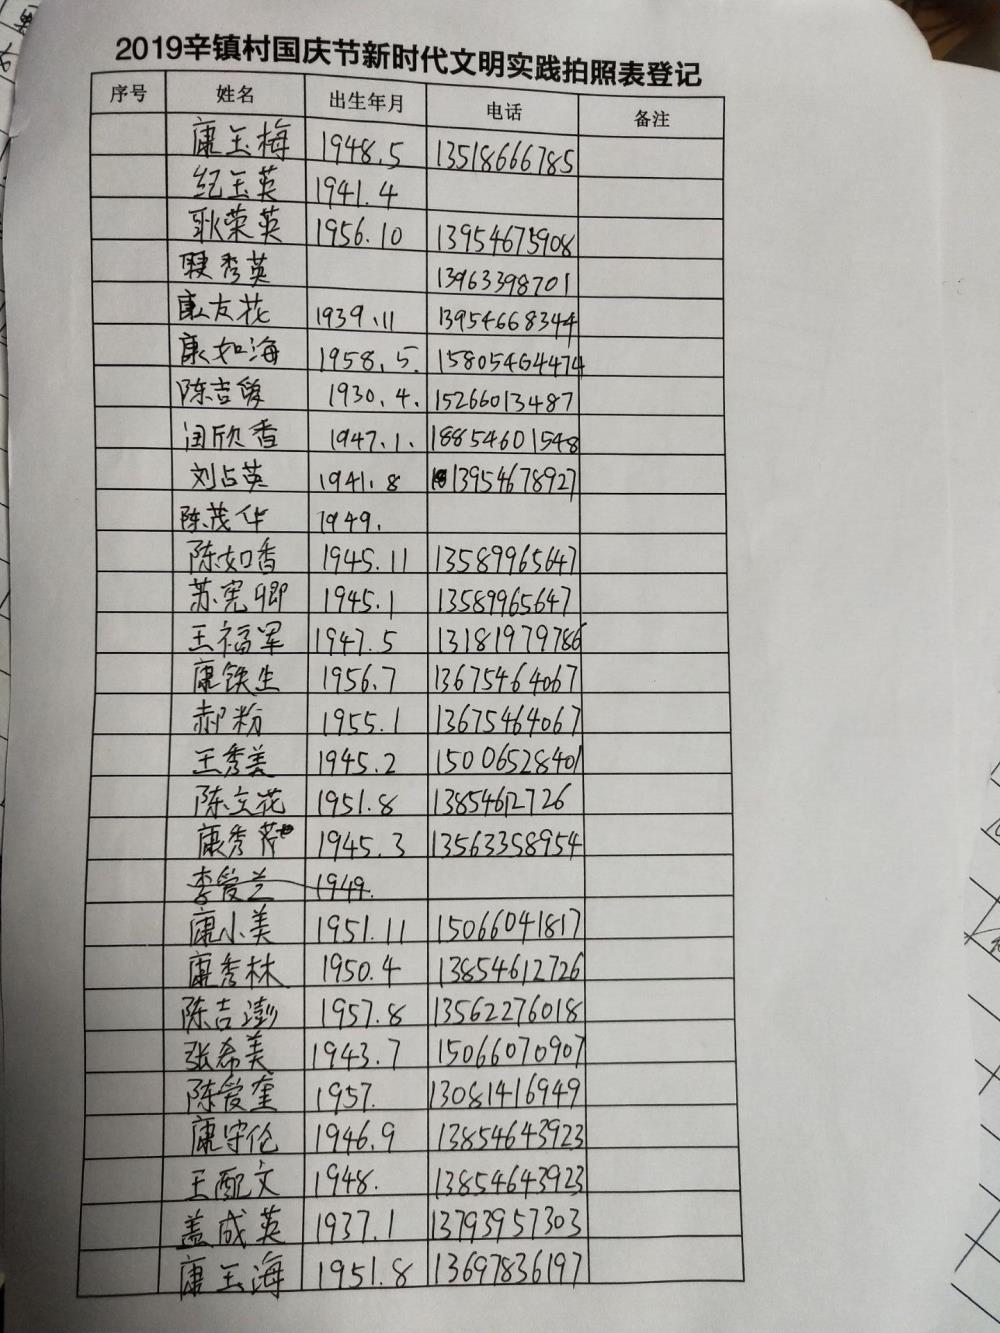 2019辛镇村国庆节新时代文明实践拍照表登记
序号 姓名 出生年月 电话 备注
康玉梅 1948.5 13518666785
纪玉英 1941.4
耿荣英 1956.10 13954675908
秀英 13963398701
康友花 1939.11 13954668344
康如海 1958.5. 15805464474
陈吉 1930.4. 15266013487
闫欣香 1947.1. 18854601548
刘占英 1941.8 13954678927
陈茂华 1949.
陈如香 1945.11 13589965647
苏宪卿 1945.1 13589965647
王福军 1947.5 13181979786
康铁生 1956.7 13675464067
郝粉 1955.1 13675464067
王秀美 1945.2 15006528401
陈立花 1951.8 13854612726
康秀芹 1945.3 13563358954
李爱兰 1949.
康小美 1951.11 15066041817
康秀林 1950.4 13854612726
陈吉澎 1957.8 13562276018
张希美 1943.7 15066070907
陈爱奎 1957. 13081416949
康守伦 1946.9 13854643923
王配文 1948. 13854643923
盖成英 1937.1 13793957303
康玉海 1951.8 13697836197